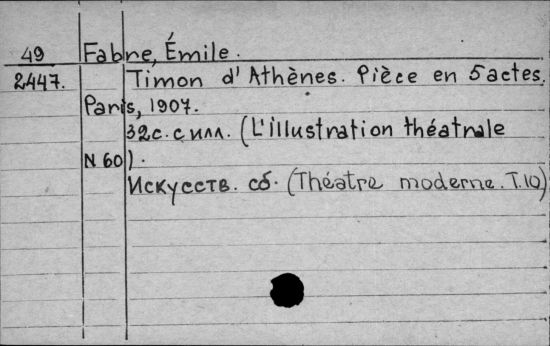 49 Fabre, Émile.
2447. Timon d'Athènes. Pièce en 5 actes.
Paris, 1907.
32 с. с илл. (L'illustration théatrale
N 60).
Искусств. сб. (Théatre moderne. T.10)